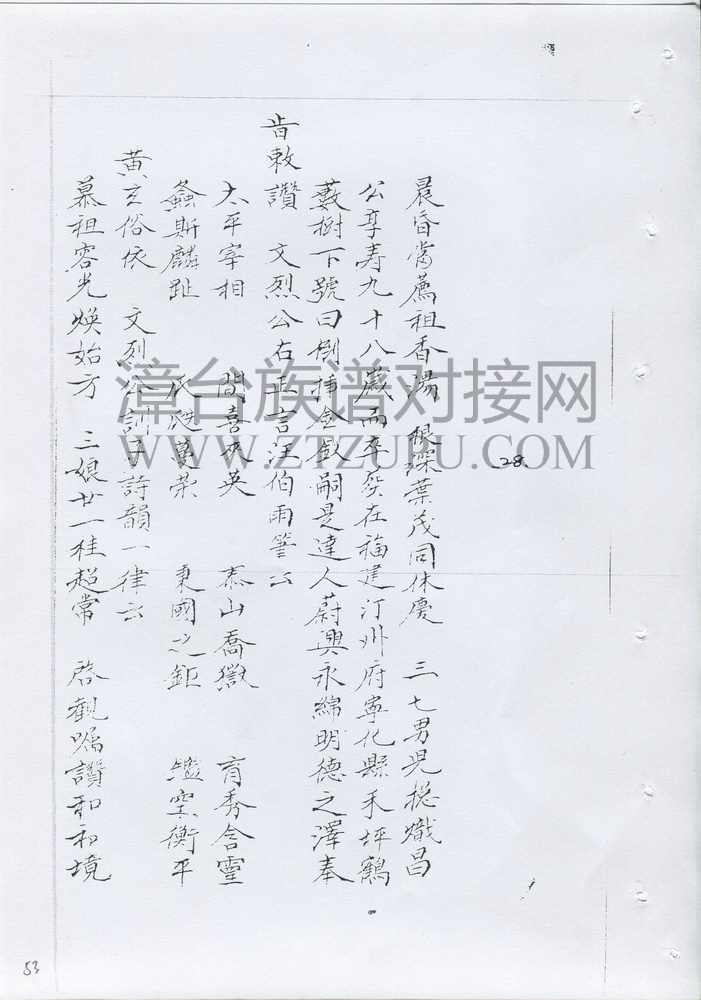 晨昏當薦祖香湯 根深葉茂同休慶 三七男兒總熾昌
公享寿九十八歲而卒葵在福建汀州府寧化縣禾坪鶴
藪樹下號曰倒挿金釵嗣是達人蔚興永綿明德之澤奉
旨敕讚 文烈公右正言汪伯雨筆云
太平宰相 間喜夾英 泰山喬嶽 育秀含靈
螽斯麟趾 瓜瓞蕃荣 秉國之鉅 鑑空衡平
黄玄俗依 文烈公訓子詩韻一律云
慕祖容光焕始方 三娘廿一桂超常 啓觀嘱讚和初境
28.
53
漳台族谱对接网
WWW.ZTZUPU.COM